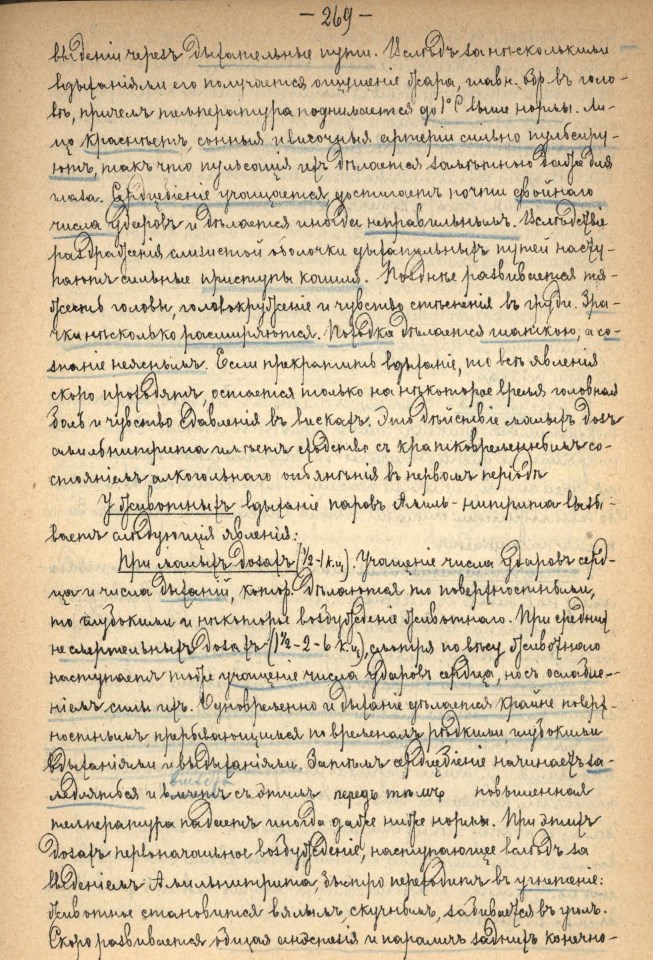 — 269 —
вѣденіи черезъ дыхательные пути. Вслѣдъ за нѣсколькими
вдыханіями его получается ощущеніе жара, главн. обр. въ голо-
вѣ, причемъ температура поднимается до 1°С выше нормы. Ли-
цо краснѣетъ, сонныя и височныя артеріи сильно пульсиру-
ютъ, такъ что пульсація ихъ дѣлается замѣтною даже для
глаза. Сердцебіеніе учащается, достигаетъ почти двойнаго
числа ударовъ и дѣлается иногда неправильнымъ. Вслѣдствіе
раздраженія слизистой оболочки дыхательныхъ путей насту-
паютъ сильные приступы кашля. Позднѣе развивается тя-
жесть головы, головокруженіе и чувство стѣсненія въ груди. Зра-
чки нѣсколько расширяются. Походка дѣлается шаткою, а со-
знаніе неяснымъ. Если прекратить вдыханіе, то всѣ явленія
скоро проходятъ, остается только на нѣкоторое время головная
боль и чувство сдавленія въ вискахъ. Это дѣйствіе малыхъ дозъ
амилънитрита имѣетъ сходство съ кратковременнымъ со-
стояніемъ алкогольнаго опьянѣнія въ первомъ періодѣ
У животныхъ вдыханіе паровъ Амилъ-нитрита вызы-
ваетъ слѣдующія явленія:
При малыхъ дозахъ (1/2-1 к.ц.). Учащеніе числа ударовъ серд-
ца и числа дыханій, котор. дѣлаются то поверхностными,
то глубокими и нѣкоторое возбужденіе животнаго. При среднихъ
не смертельныхъ дозахъ (1½-2-6 к.ц.), смотря по вѣсу животнаго
наступаетъ тоже учащеніе числа ударовъ сердца, но съ ослабле-
ніемъ силы ихъ. Одновременно и дыханіе дѣлается крайне поверх-
ностнымъ, прерывающимся по временамъ рѣдкими, глубокими
вдыханіями и выдыханіями. Затѣмъ сердцебіеніе начинаетъ за-
медляться и вмѣстѣ съ этимъ передъ тѣмъ повышенная
температура падаетъ иногда даже ниже нормы. При этихъ
дозахъ первоначальное возбужденіе, наступающее вслѣдъ за
введеніемъ Амилънитрита, быстро переходитъ въ угнетеніе:
животное становится вялымъ, скучнымъ, забивается въ уголъ.
Скоро развивается общая анэстезія и параличъ заднихъ конечно-